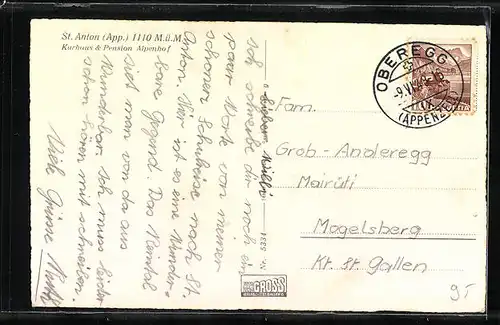 St. Anton (App.) 1110 M.ü.M.
Kurhaus & Pension Alpenhof
Lieber Willi
Ich schreibe dir noch ein
paar Worte von meiner
schönen Schulreise nach St.
Anton. Hier ist es eine Wunder-
bare Gegend. Das Reintal
siet man von da aus
Wunderbar. Ich muss leider
schon hören mit schreiben.
Viele Grüsse
No. 5331
GROSS
OBEREGG
(APPENZELL)
Fam.
Grob-Anderegg
Mairüti
Mogelsberg
Kt. St. Gallen
95